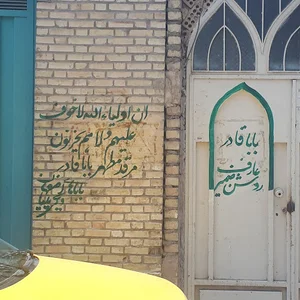 ان اولیاء الله لا خوف
علیهم و لا هم یحزنون
مرقد مطهر بابا قادر
بابا
بابا قادر
عارف
روشن ضمیر